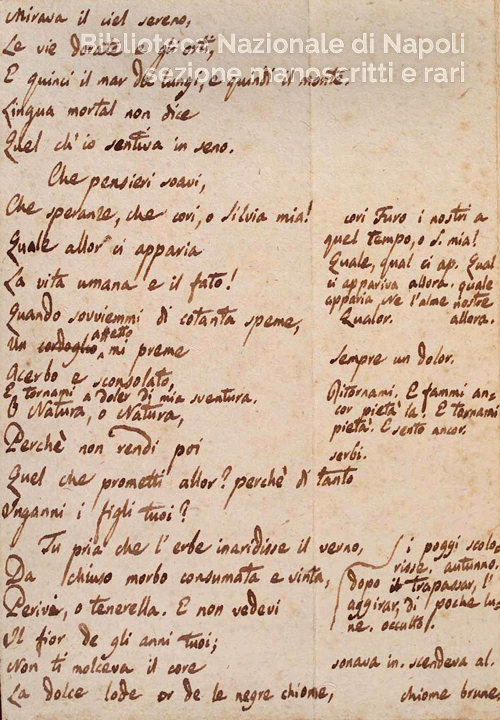 Biblioteca Nazionale di Napoli
sezione manoscritti e rari
Mirava il ciel sereno,
Le vie dorate e gli orti,
E quinci il mar da lungi, e quindi il monte.
Lingua mortal non dice
Quel ch'io sentiva in seno.
Che pensieri soavi,
Che speranze, che cori, o Silvia mia!
Quale allor ci apparia
La vita umana e il fato!
Quando sovviemmi di cotanta speme,
Un cordoglio affetto mi preme
Acerbo e sconsolato,
E tornami a doler di mia sventura.
O Natura, o Natura,
Perchè non rendi poi
Quel che prometti allor? perchè di tanto
Inganni i figli tuoi?
Tu pria che l'erbe inaridisse il verno,
Da chiuso morbo consumata e vinta,
Perivi, o tenerella. E non vedevi
Il fior de gli anni tuoi;
Non ti molceva il core
La dolce lode or de le negre chiome,
cori Furo i nostri a
quel tempo, o S. mia!
Quale, qual ci ap. Qual
ci appariva allora. quale
apparia, ne l'alme nostre
Qualor. allora.
sempre un dolor.
Ritornami. E fammi an-
cor pietà la. E tornami
pietà. E sento ancor.
serbi.
i poggi scolo-
risse. autunno.
dopo il trapassar, l'
aggirar, di poche lu-
ne. occulto.
sonava in. scendeva al.
chiome brune,